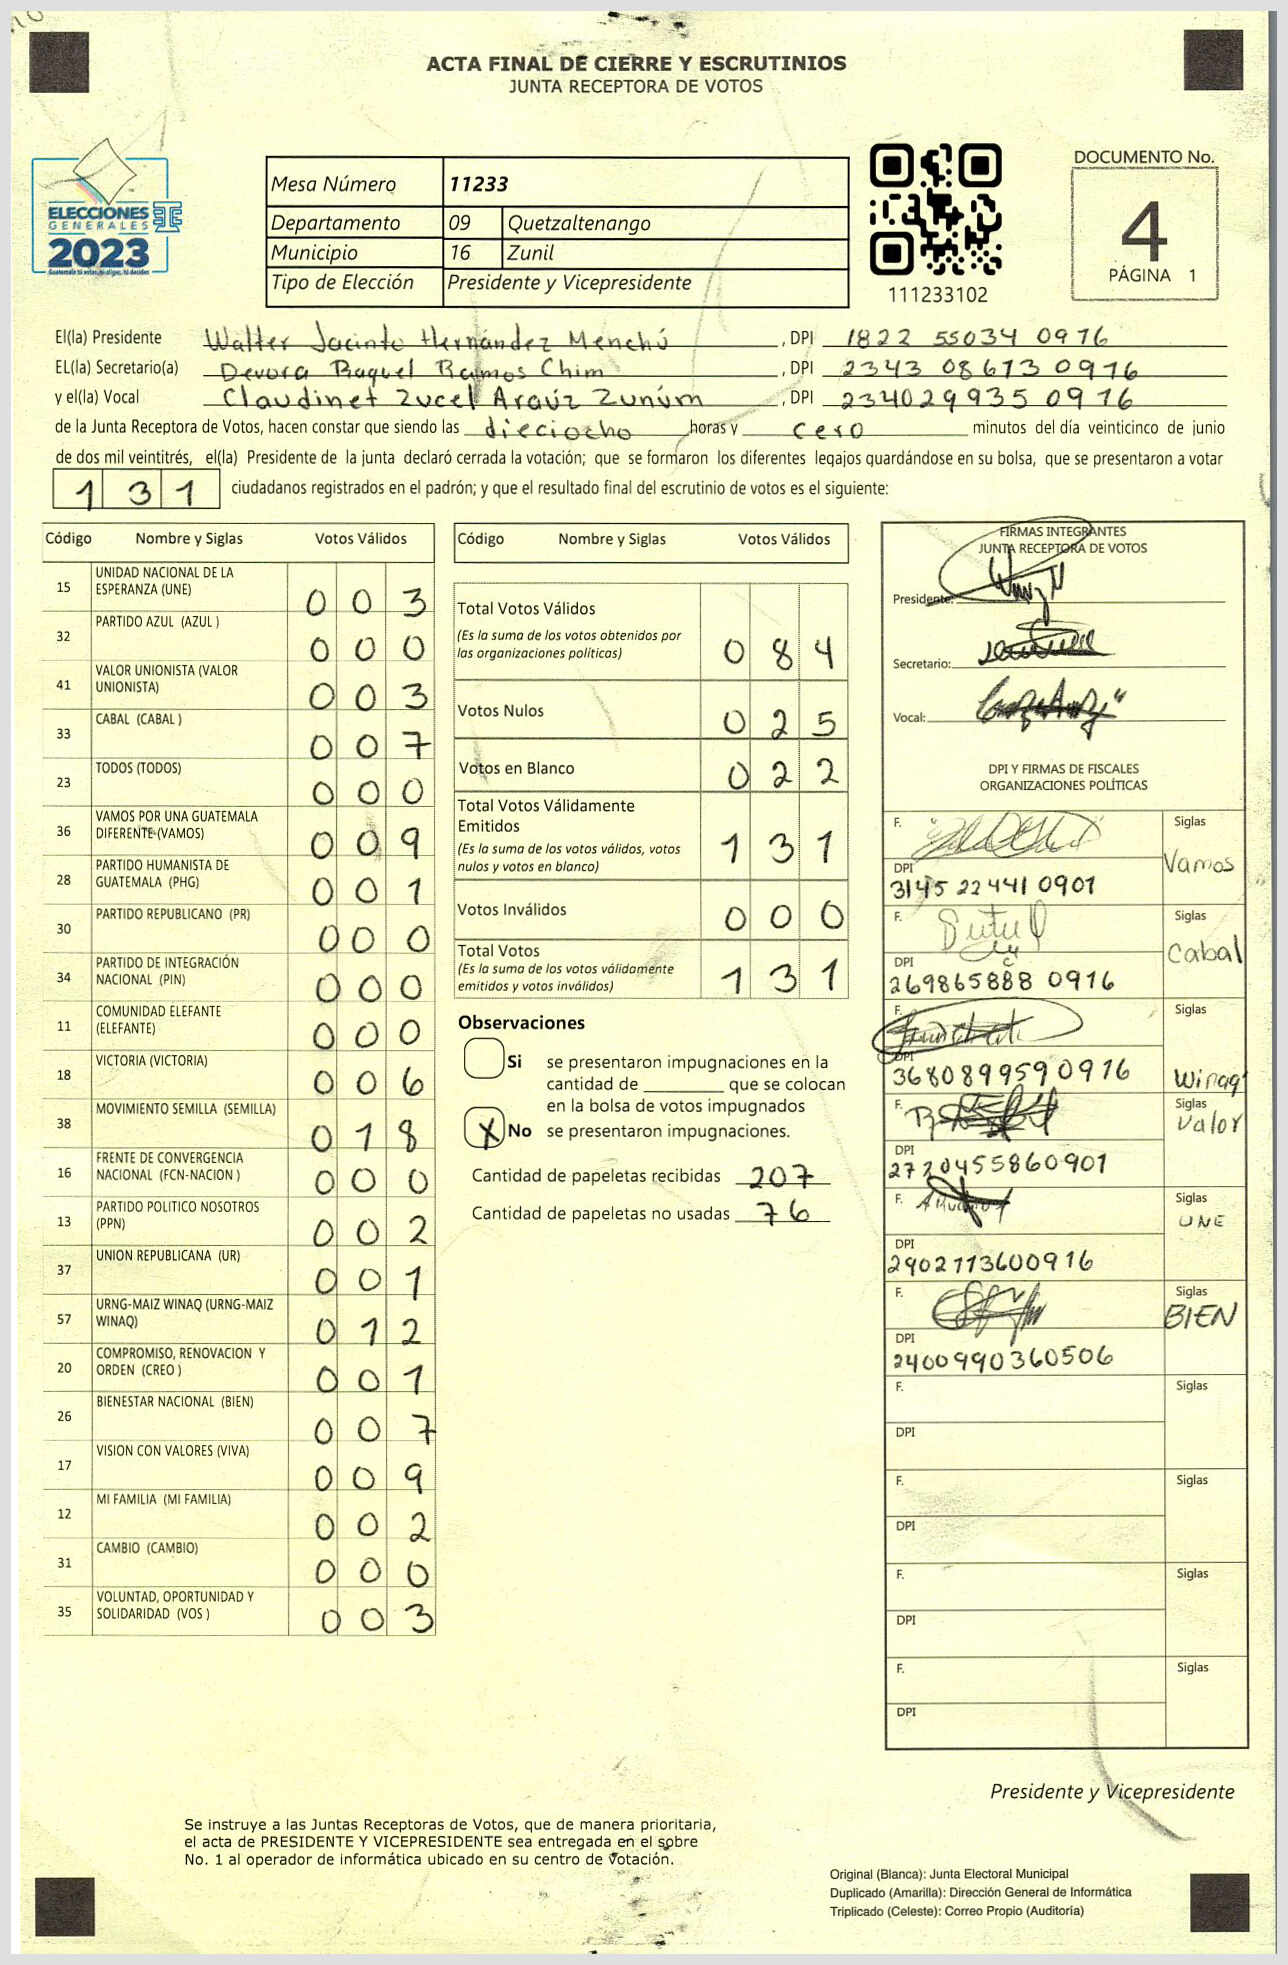 ACTA FINAL DE CIERRE Y ESCRUTINIOS
JUNTA RECEPTORA DE VOTOS
ELECCIONES
GENERALES
2023
Mesa Número 11233
Departamento 09 Quetzaltenango
Municipio 16 Zunil
Tipo de Elección Presidente y Vicepresidente
111233102
DOCUMENTO No.
4
PÁGINA 1
El(la) Presidente Walter Jacinto Hernández Menchú , DPI 1822 55034 0976
EL(la) Secretario(a) Devora Raquel Ramos Chim , DPI 2343 08673 0976
y el(la) Vocal Claudinet Zucel Araúz Zunúm , DPI 234029935 0976
de la Junta Receptora de Votos, hacen constar que siendo las dieciocho horas y cero minutos del día veinticinco de junio
de dos mil veintitrés, el(la) Presidente de la junta declaró cerrada la votación; que se formaron los diferentes legajos guardándose en su bolsa, que se presentaron a votar
131 ciudadanos registrados en el padrón; y que el resultado final del escrutinio de votos es el siguiente:
Código Nombre y Siglas Votos Válidos
15 UNIDAD NACIONAL DE LA ESPERANZA (UNE) 003
32 PARTIDO AZUL (AZUL ) 000
41 VALOR UNIONISTA (VALOR UNIONISTA) 003
33 CABAL (CABAL ) 007
23 TODOS (TODOS) 000
36 VAMOS POR UNA GUATEMALA DIFERENTE (VAMOS) 009
28 PARTIDO HUMANISTA DE GUATEMALA (PHG) 001
30 PARTIDO REPUBLICANO (PR) 000
34 PARTIDO DE INTEGRACIÓN NACIONAL (PIN) 000
11 COMUNIDAD ELEFANTE (ELEFANTE) 000
18 VICTORIA (VICTORIA) 006
38 MOVIMIENTO SEMILLA (SEMILLA) 018
16 FRENTE DE CONVERGENCIA NACIONAL (FCN-NACION ) 000
13 PARTIDO POLITICO NOSOTROS (PPN) 002
37 UNION REPUBLICANA (UR) 001
57 URNG-MAIZ WINAQ (URNG-MAIZ WINAQ) 012
20 COMPROMISO, RENOVACION Y ORDEN (CREO ) 001
26 BIENESTAR NACIONAL (BIEN) 007
17 VISION CON VALORES (VIVA) 009
12 MI FAMILIA (MI FAMILIA) 002
31 CAMBIO (CAMBIO) 000
35 VOLUNTAD, OPORTUNIDAD Y SOLIDARIDAD (VOS ) 003
Código Nombre y Siglas Votos Válidos
Total Votos Válidos 084
(Es la suma de los votos obtenidos por
las organizaciones políticas)
Votos Nulos 025
Votos en Blanco 022
Total Votos Válidamente
Emitidos 131
(Es la suma de los votos válidos, votos
nulos y votos en blanco)
Votos Inválidos 000
Total Votos 131
(Es la suma de los votos válidamente
emitidos y votos inválidos)
Observaciones
Si se presentaron impugnaciones en la
cantidad de ________ que se colocan
en la bolsa de votos impugnados
X No se presentaron impugnaciones.
Cantidad de papeletas recibidas 207
Cantidad de papeletas no usadas 76
FIRMAS INTEGRANTES
JUNTA RECEPTORA DE VOTOS
Presidente:
Secretario:
Vocal:
DPI Y FIRMAS DE FISCALES
ORGANIZACIONES POLÍTICAS
F. Siglas
Vamos
DPI
3145 22441 0901
F. Siglas
Cabal
DPI
269865888 0916
F. Siglas
DPI
3680899590976 Winaq
F. Siglas
Valor
DPI
2720455860901
F. Siglas
UNE
DPI
2902113600916
F. Siglas
BIEN
DPI
2400990360506
F. Siglas
DPI
F. Siglas
DPI
F. Siglas
DPI
F. Siglas
DPI
Presidente y Vicepresidente
Se instruye a las Juntas Receptoras de Votos, que de manera prioritaria,
el acta de PRESIDENTE Y VICEPRESIDENTE sea entregada en el sobre
No. 1 al operador de informática ubicado en su centro de votación.
Original (Blanca): Junta Electoral Municipal
Duplicado (Amarilla): Dirección General de Informática
Triplicado (Celeste): Correo Propio (Auditoría)